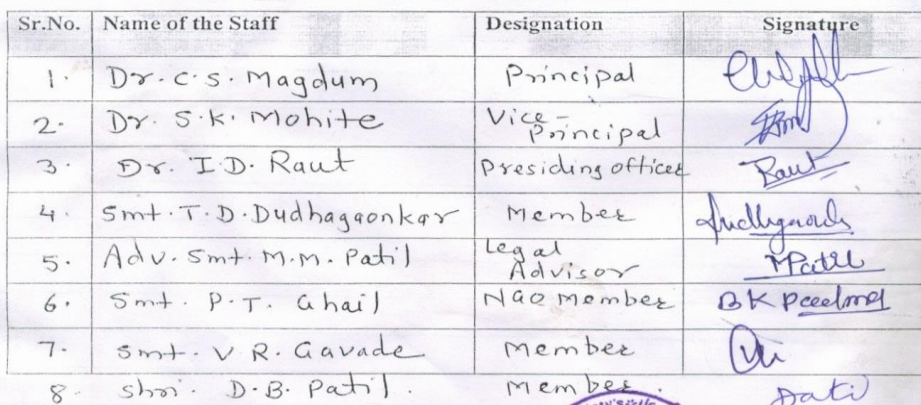 Sr.No. Name of the Staff Designation Signature
1. Dr. C.S. Magdum Principal
2. Dr. S.K. Mohite Vice-
Principal
3. Dr. I.D. Raut Presiding officer Raut
4. Smt. T.D. Dudhagaonkar Member
5. Adv. Smt. M.M. Patil Legal
Advisor MPatil
6. Smt. P.T. Ghail NGO Member BK
7. Smt. V R. Gavade Member
8. Shri. D.B. Patil. Member.